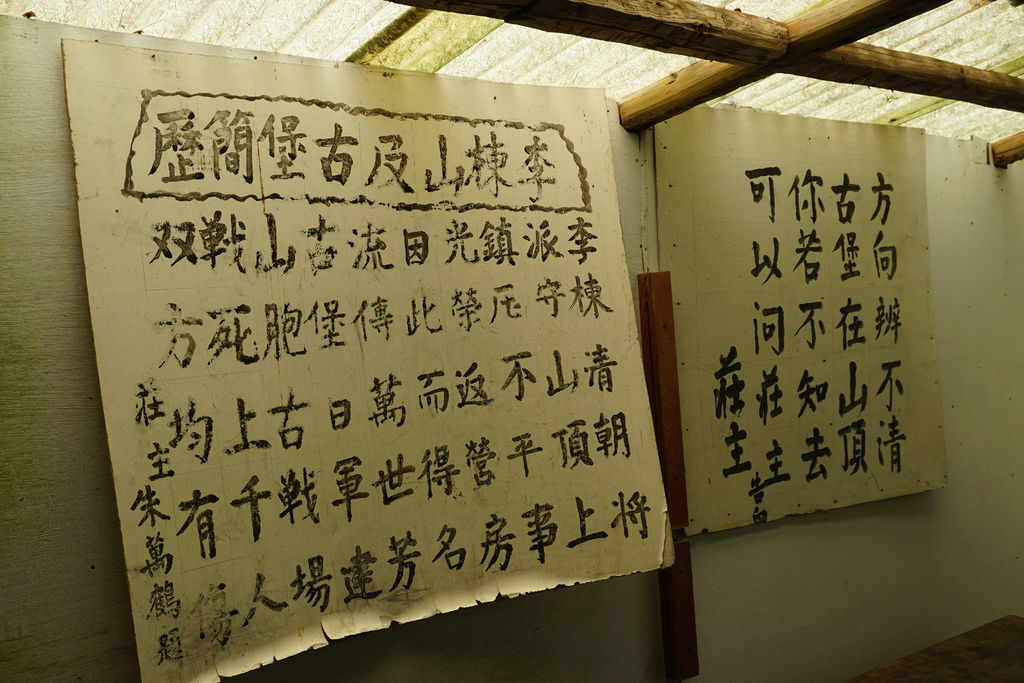 李棟山及古堡簡歷
李棟清朝將
派守山頂上
鎮压不平事
光榮返營房
因此而得名
流傳萬世芳
古堡日軍建
山胞古戰場
戰死上千人
双方均有傷
莊主朱萬鶴題
方向辨不清
古堡在山頂
你若不知去
可以问莊主
莊主告白